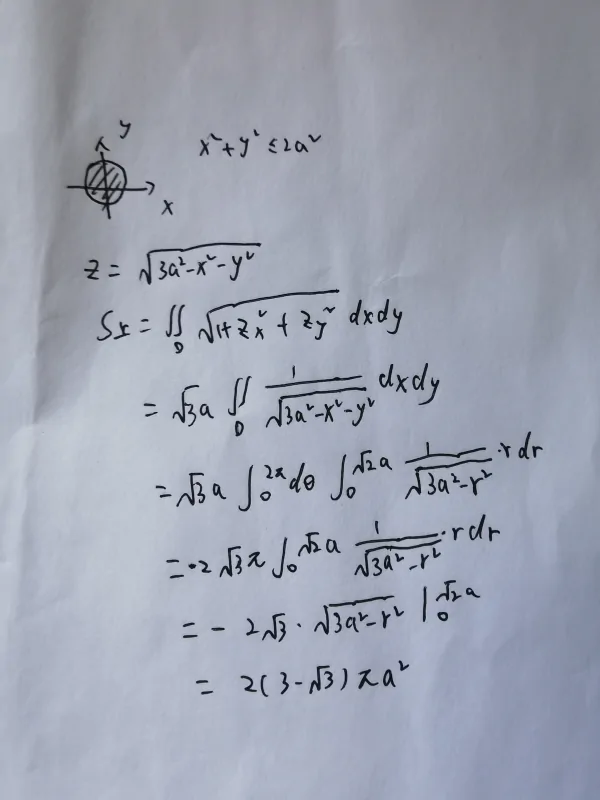 y
x² + y² ≤ 2a²
x
z = √(3a² - x² - y²)
S_Σ = ∬_D √(1 + z_x² + z_y²) dxdy
= √3 a ∬_D 1/√(3a² - x² - y²) dxdy
= √3 a ∫₀^{2π} dθ ∫₀^{√2 a} 1/√(3a² - r²) · r dr
= · 2√3 π ∫₀^{√2 a} 1/√(3a² - r²) · r dr
= - 2√3 · √(3a² - r²) |₀^{√2 a}
= 2(3 - √3) π a²